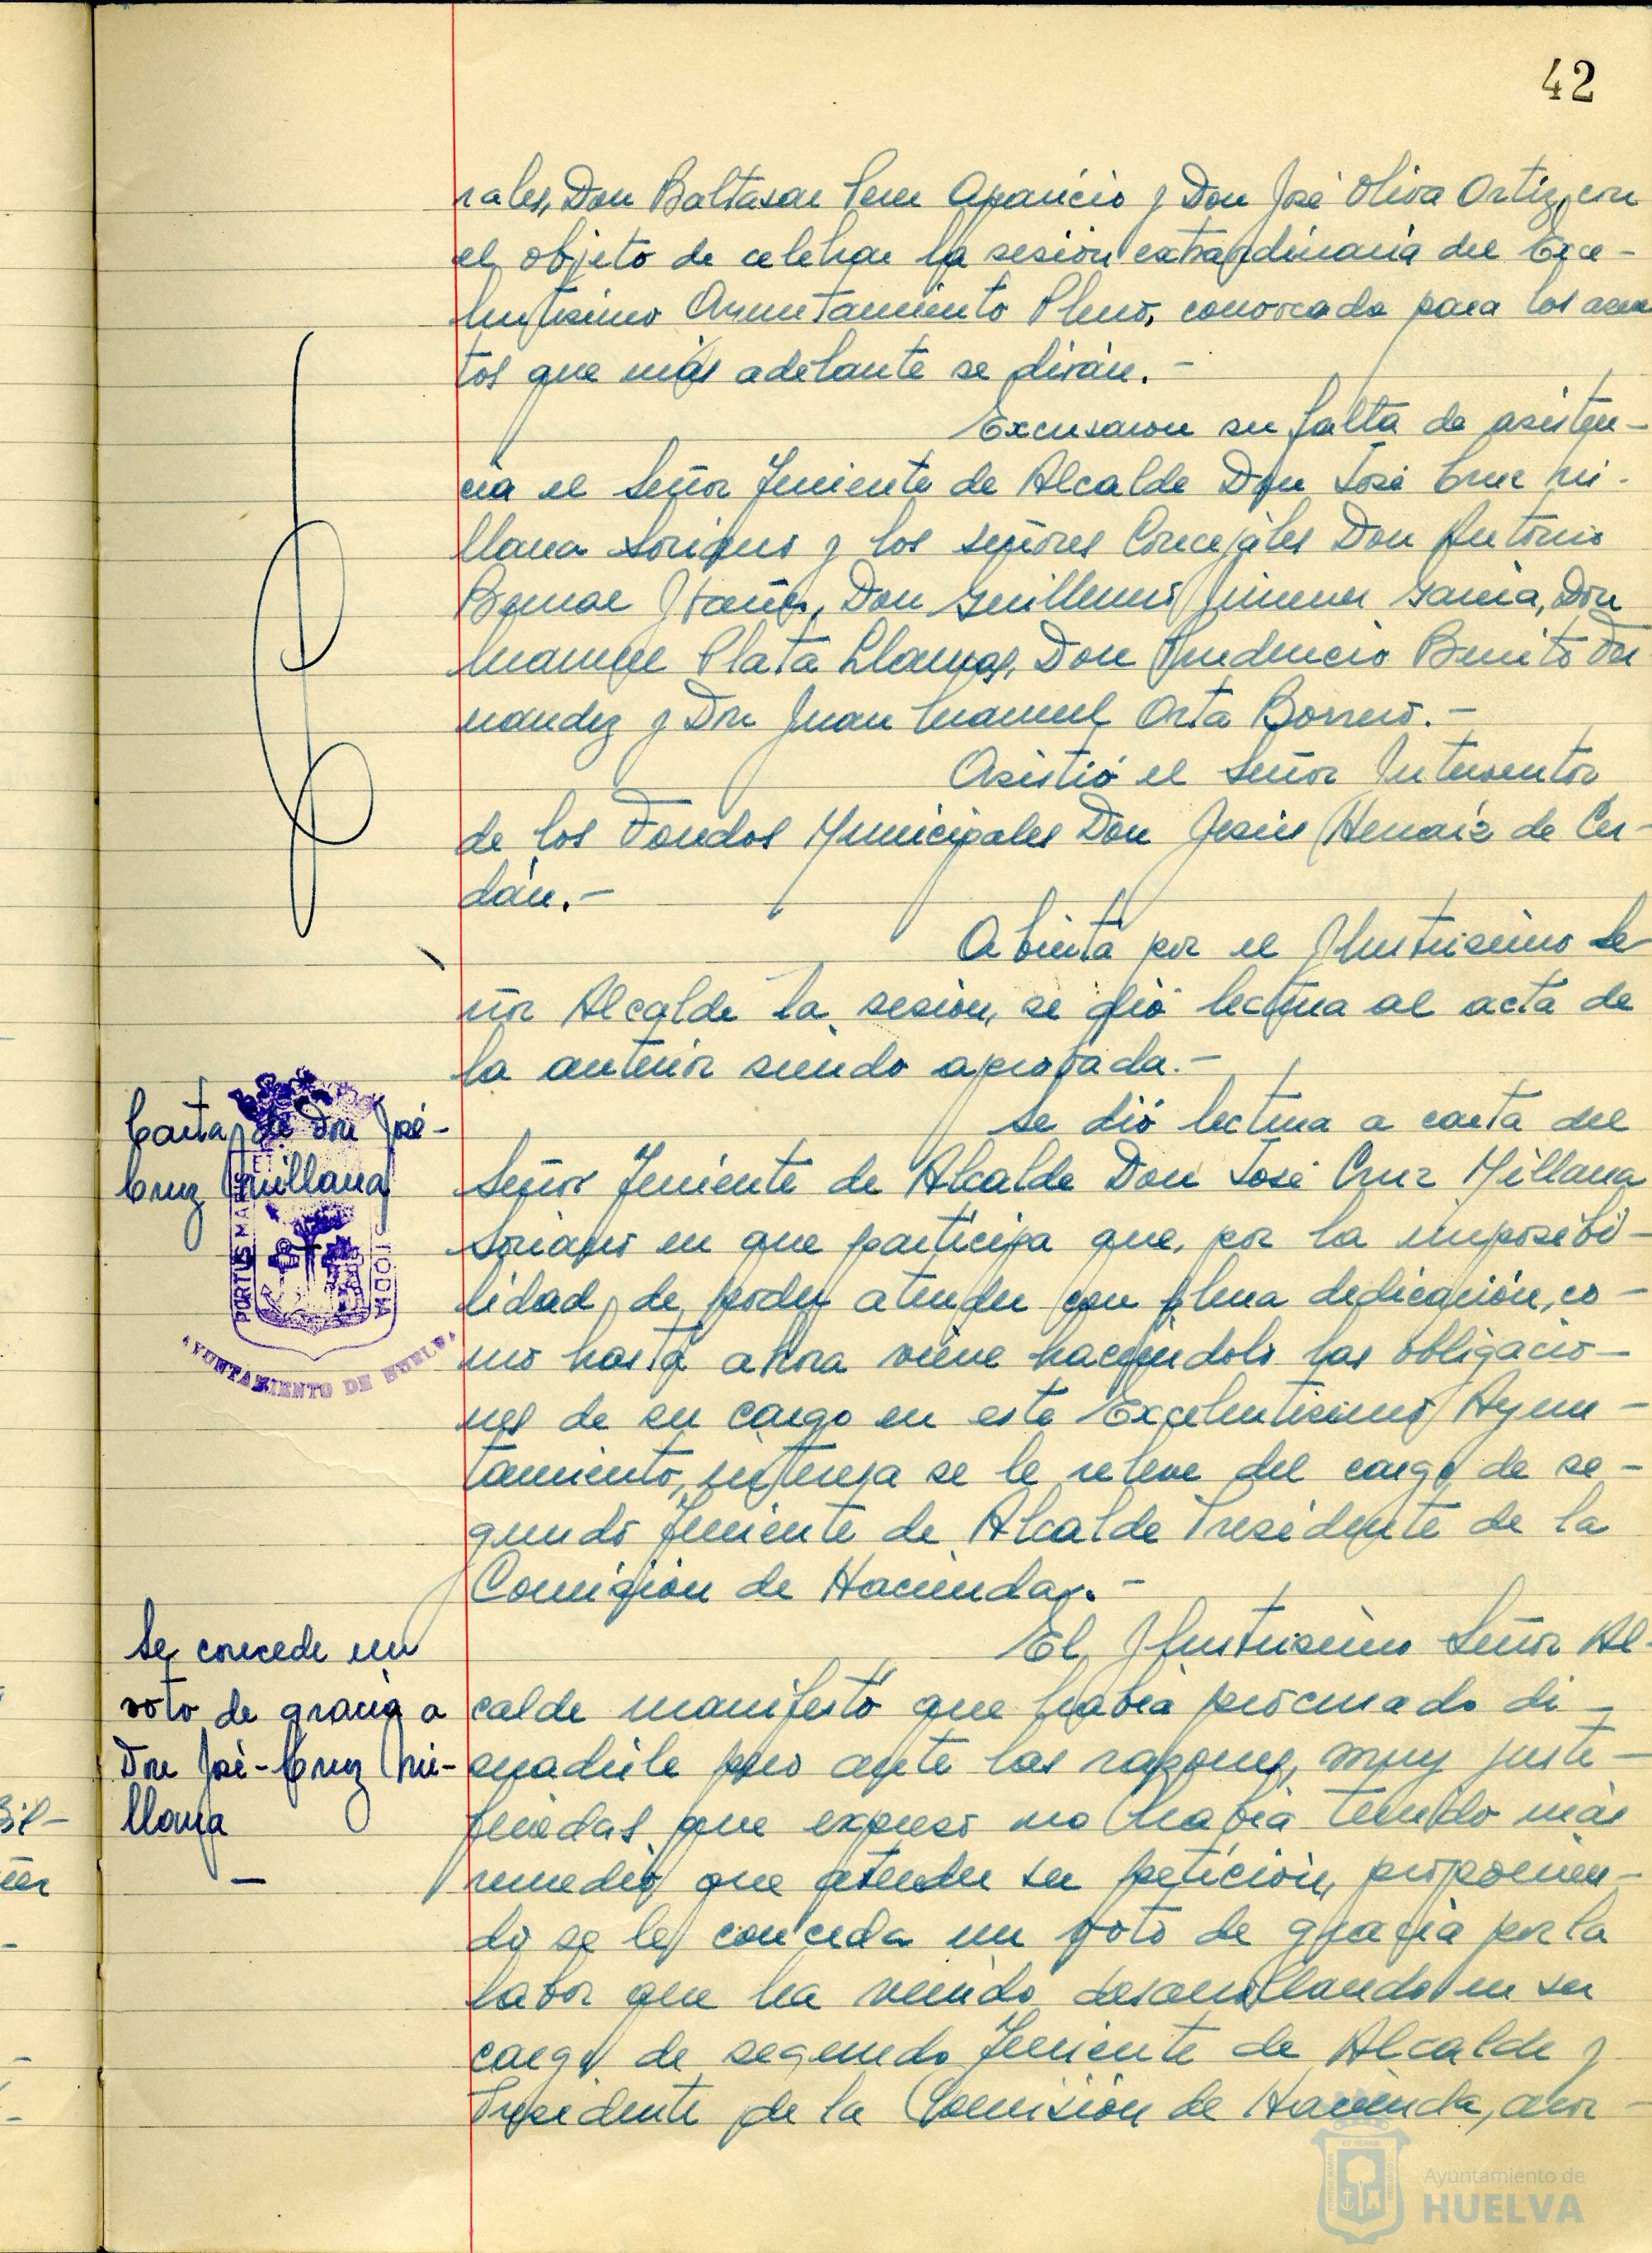 42
rales, Don Baltasar Aparicio y Don José Oliva Ortiz, con
el objeto de celebrar la sesión extraordinaria del Exce-
lentisimo Ayuntamiento Pleno, convocada para los asun
tos que más adelante se dirán.-
Excusaron su falta de asisten-
cia el Señor Teniente de Alcalde Don José Cruz Mi-
llana Soriano y los señores Concejales Don Antonio
Don Guillermo Jimenez Garcia, Don
Manuel Plata Llamas, Don Prudencio Benito Fer
nandez y Don Juan Manuel Orta Borrero.-
Asistió el Señor Interventor
de los Fondos Municipales Don Jesús Henaiz de Cer-
dán.-
Abierta por el Ilustrisimo Se
ñor Alcalde la sesión, se dió lectura al acta de
la anterior siendo aprobada.-
Carta de Don José-
Cruz Millana
Se dió lectura a carta del
Señor Teniente de Alcalde Don José Cruz Millana
Soriano en que participa que, por la imposibi-
lidad de poder atender con plena dedicación, co-
mo hasta ahora viene haciéndolo las obligacio-
nes de su cargo en este Excelentisimo Ayun-
tamiento, interesa se le releve del cargo de se-
gundo Teniente de Alcalde Presidente de la
Comisión de Hacienda.-
Se concede un
voto de gracia a
Don José-Cruz Mi-
llana
—
El Ilustrisimo Señor Al-
calde manifestó que habia procurado di-
suadirle pero ante las razones, muy justi-
ficadas que expuso no habia tenido más
remedio que atender su petición, proponien-
do se le conceda un voto de gracia por la
labor que ha venido desarrollando en su
cargo de segundo Teniente de Alcalde y
Presidente de la Comisión de Hacienda, acor-
PORTUS MARIS ET
CUSTODIA
AYUNTAMIENTO DE HUELVA
Ayuntamiento de
HUELVA